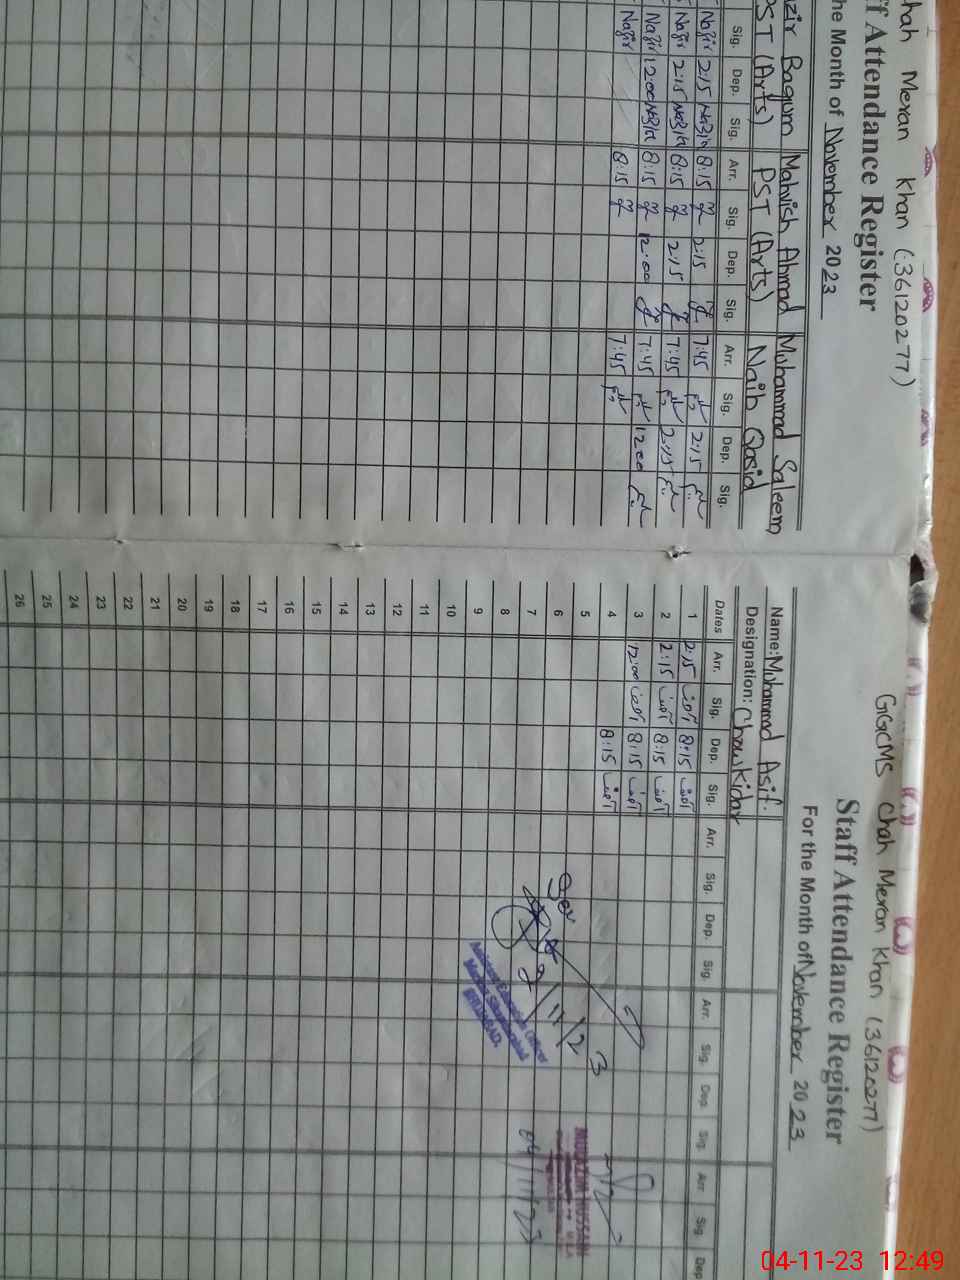 hah Meran Khan (36120277)
ff Attendance Register
he Month of November 2023
azir Bagum Mahvish Ahmad Muhammad Saleem
PST (Arts) PST (Arts) Naib Qasid
Sig. Dep. Sig. Arr. Sig. Dep. Sig. Arr. Sig. Dep. Sig.
Nazir 2:15 Nazir 8:15 2:15 7:45 2:15
Nazir 2:15 Nazir 8:15 2:15 7:45 2:15
Nazir 12:00 Nazir 8:15 12:00 7:45 1200
Nazir 8:15 7:45
GGCMS Chah Meran Khan (36120277)
Staff Attendance Register
For the Month of November 2023
Name: Muhammad Asif.
Designation: Chowkidar
Dates Arr. Sig. Dep. Sig. Arr. Sig. Dep. Sig. Arr. Sig. Dep. Sig. Arr. Sig. Dep
1 2:15 آصف 8:15 آصف
2 2:15 آصف 8:15 آصف
3 12:00 آصف 8:15 آصف
4 8:15 آصف
5
6
7
8
9
10
11
12
13
14
15
16
17
18
19
20
21
22
23
24
25
26
2/11/23
Assistant Education Officer
Markaz
04/11/23
04-11-23 12:49